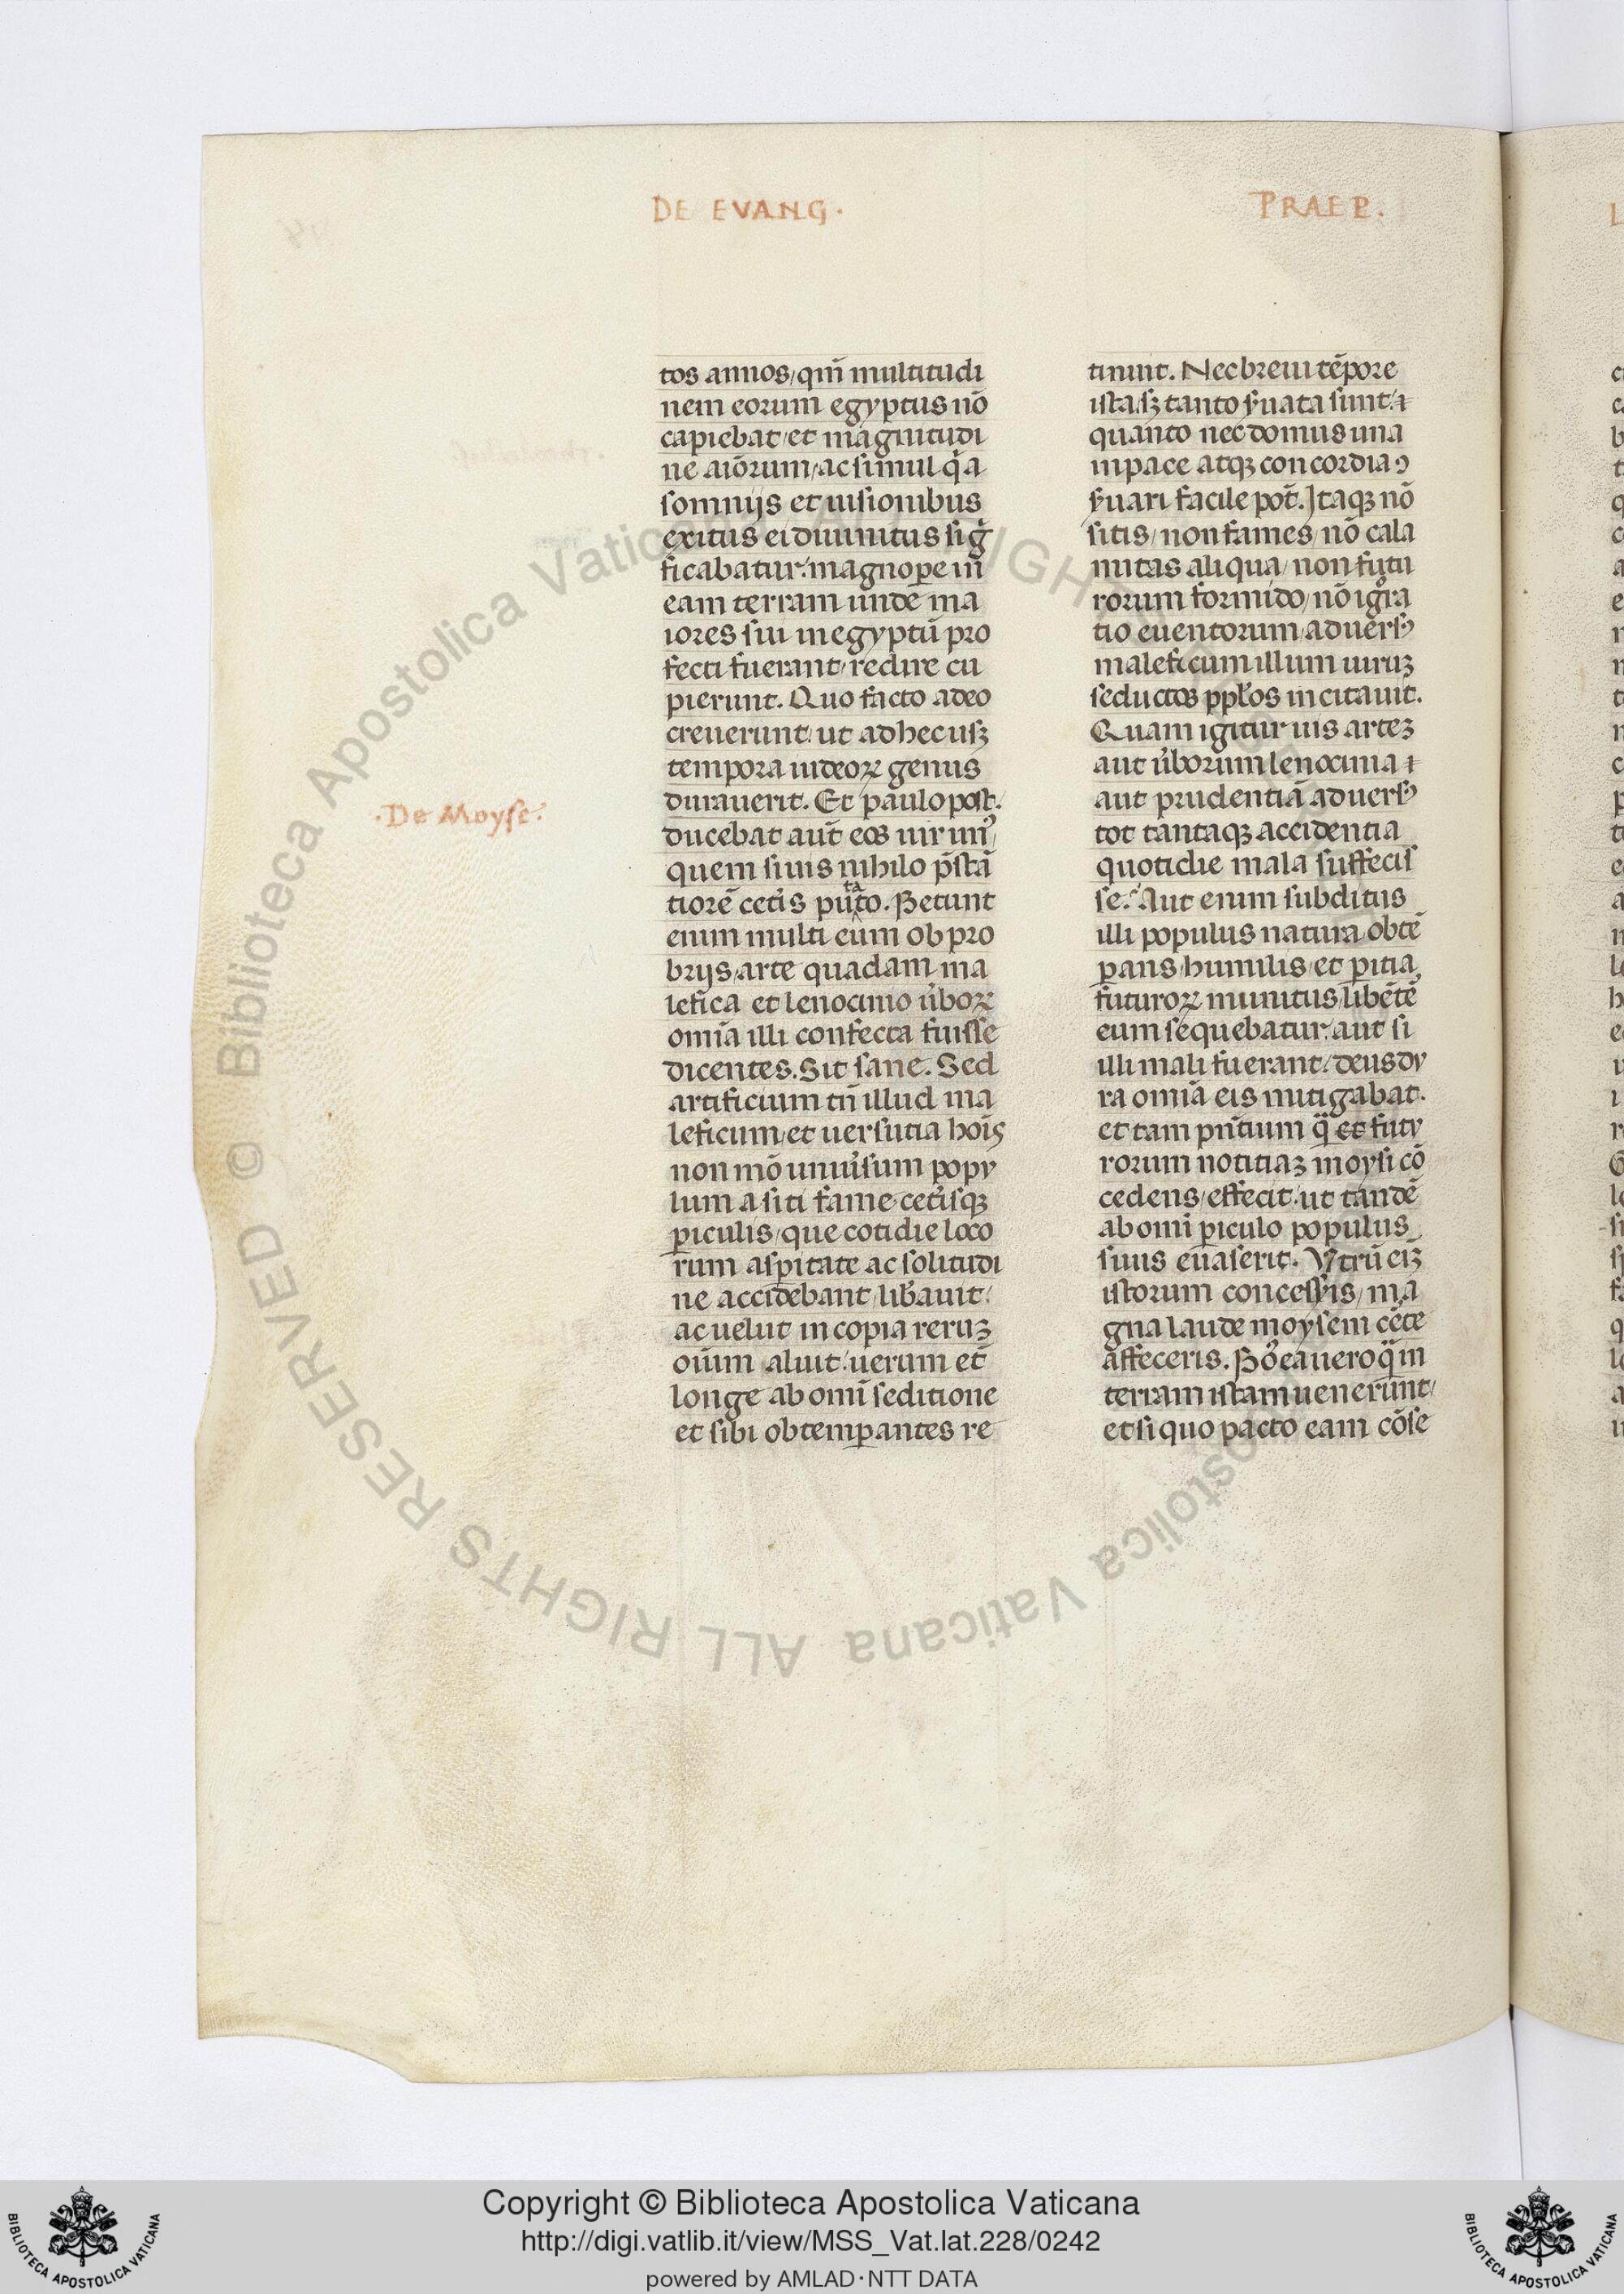 DE EVANG.
PRAEP.
tos annos, qm̄ multitudi
nem eorum egyptus nō
capiebat, et magnitudi
ne aiōrum, ac simul q̇a
somnijs et uisionibus
exitus ei diuinitus sigͥ
ficabatur: magnoꝑe in
eam terram unde ma
iores sui in egyptū pro
fecti fuerant, redire cu
pierunt. Quo facto adeo
creuerunt, ut ad hec usꝫ
tempora iudeoꝝ genus
durauerit. Et paulo post.
.De Moyse.
ducebat aut̄ eos uir un᷒,
quem siuis nihilo p̄stā
tiorē cetis putato. Petunt
enim multi eum ob pro
brijs, arte quadam ma
lefica et lenocinio u̓boꝝ
omīa illi confecta fuisse
dicentes. Sit sane. Sed
artificium tn̄ illud ma
leficum, et uersutia hoīs
non mō uniu̓sum popu
lum a siti fame cetisqꝫ
ꝑiculis, que cotidie loco
rum asꝑitate ac solitudi
ne accidebant, libauit,
ac uelut in copia reruꝫ
oīum aluit: uerum et̄
longe ab omī seditione
et sibi obtemꝑantes re
tinuit. Nec breui tēpore
ista, sꝫ tanto s̓uata sunt,
quanto nec domus una
in pace atqꝫ concordia ↄ
s̓uari facile pōt. Itaqꝫ nō
sitis, non fames, nō cala
mitas aliqua, non futu
rorum formido, nō igͦra
tio euentorum, aduers᷒
maleficum illum uiruꝫ
seductos ppl̓os incitauit.
Quam igitur uis arteꝫ
aut u̓borum lenocinia
aut prudentiā aduers᷒
tot tantaqꝫ accidentia
quotidie mala suffecis
se? Aut enim subditus
illi populus natura obtē
ꝑans, humilis, et ꝑitia
futuroꝝ munitus, libētē
eum sequebatur: aut si
illi mali fuerant, deus du
ra omīa eis mitigabat.
et tam pn̄tium q̈ et futu
rorum notitiaꝫ moysi cō
cedens, effecit, ut tandē
ab omī ꝑiculo populus
suus euaserit. Vtrū eiꝫ
istorum concesseris, ma
gna laude moysem cēte
affeceris. Pō ea uero q̈ in
terram istam uenerunt,
et si quo pacto eam cōse
Copyright © Biblioteca Apostolica Vaticana
http://digi.vatlib.it/view/MSS_Vat.lat.228/0242
powered by AMLAD·NTT DATA
BIBLIOTECA APOSTOLICA VATICANA
BIBLIOTECA APOSTOLICA VATICANA